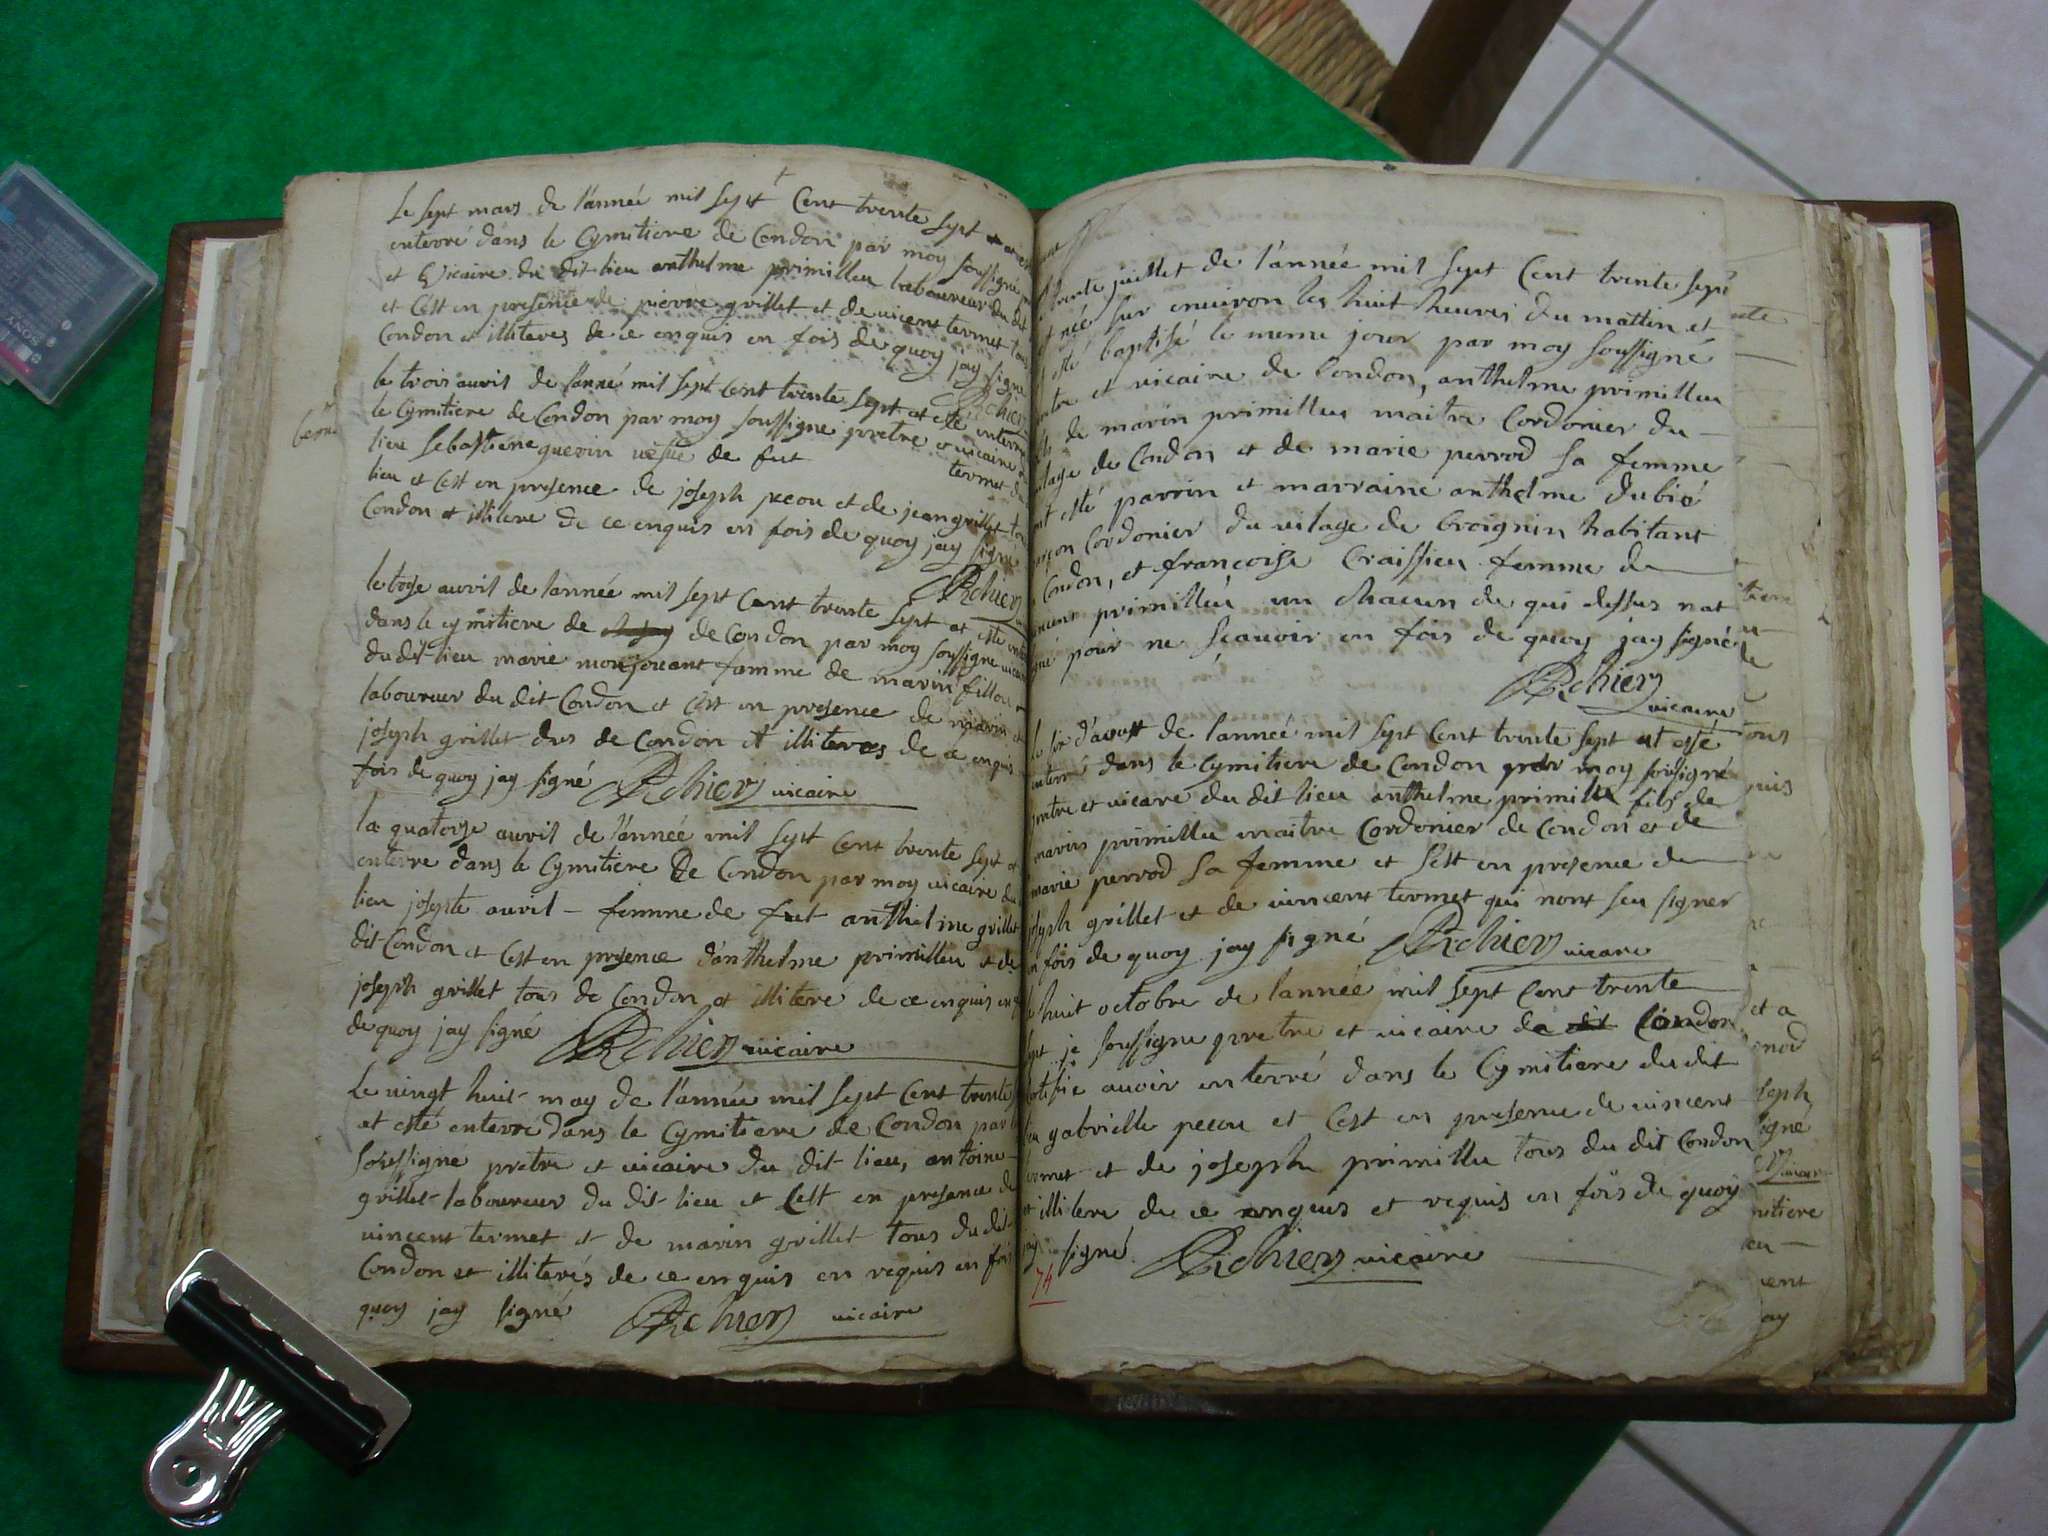 le sept mars de l'année mil sept Cent trente sept
enterré dans le Cymitiere de Condon par moy soussigné
et Vicaire du dit lieu anthelme primilleu laboureur du dit
et c'est en presence de pierre grillet et de vicent termet tous
Condon et illiteres de ce enquis en fois de quoy jay signé
Richier
le trois avril de l'anné mil sept cent trente sept at esté enterré
le Cymitiere de Condon par moy soussigne pretre et vicaire
lieu Sebastiene guerin vesve de fut termet du
lieu et c'est en presence de joseph pecou et de jean grillet tous
Condon et illitere de ce enquis en fois de quoy jay signé
Richier
le treze avril de lannée mil sept Cent trente sept at esté
dans le cymitiere de de Condon par moy soussigne vicaire
du dit lieu marie monjouant famme de marin fillou
laboureur du dit Condon et c'est en presence de marin et
joseph grillet dus de Condon et illiteres de ce enquis
fois de quoy jay signé Richier vicaire
le quatorze avril de l'année mil sept cent trente sept at
enterre dans le Cymitiere de Condon par moy vicaire du
lieu josepte avril - femme de fut anthelme grillet
dit Condon et c'est en presence d'anthelme primilleu et de
joseph grillet tous de Condon et illiteré de ce enquis en
de quoy jay signé Richier vicaire
Le vingt huit may de l'année mil sept Cent trente
et esté enterré dans le Cymitiere de Condon par
soussigne pretre et vicaire du dit lieu, antoine
grillet laboureur du dit lieu et c'est en presence de
vincent termet et de marin grillet tous du dit
Condon et illiterés de ce enquis en requis en fois
quoy jay signé Richier vicaire
trente juillet de l'année mil sept Cent trente sept
née sur environ les huit heures du mattin et
esté baptisé le meme jour par moy soussigné
pretre et vicaire de Condon, anthelme primilleu
fils de marin primilleu maitre Cordonier du
vilage de Condon et de marie perrod sa femme
ont esté parrin et marraine anthelme dubié
garçon Cordonier du vilage de Groignin habitant
Condon, et francoise Craissieu femme de
vincent primilleu un chacun de qui dessus nat
signé pour ne scauoir en fois de quoy jay signé
Richier
vicaire
le six d'avost de lannée mil sept Cent trente sept at esté
enterré dans le Cymitiere de Condon par moy soussigné
pretre et vicare du dit lieu anthelme primilleu fils de
marin primilleu maitre Cordonier de Condon et de
marie perrod sa femme et sest en presence de
joseph grillet et de vincent termet qui nont seu signer
en fois de quoy jay signé Richier vicare
le huit octobre de lannée mil sept Cent trente
sept je soussigne pretre et vicaire de Condon
certifie avoir enterré dans le Cymitiere du dit
lieu gabrielle pecou et C'est en presence de vincent
termet et de joseph primilleu tous du dit Condon
et illitere de ce enquis et requis en fois de quoy
jay signé Richier vicaire
74